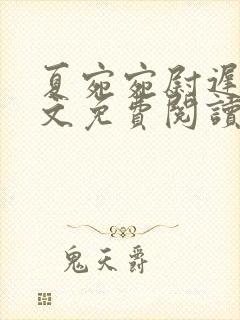 夏宛宛尉遲
文免費閱讀
鬼天爵